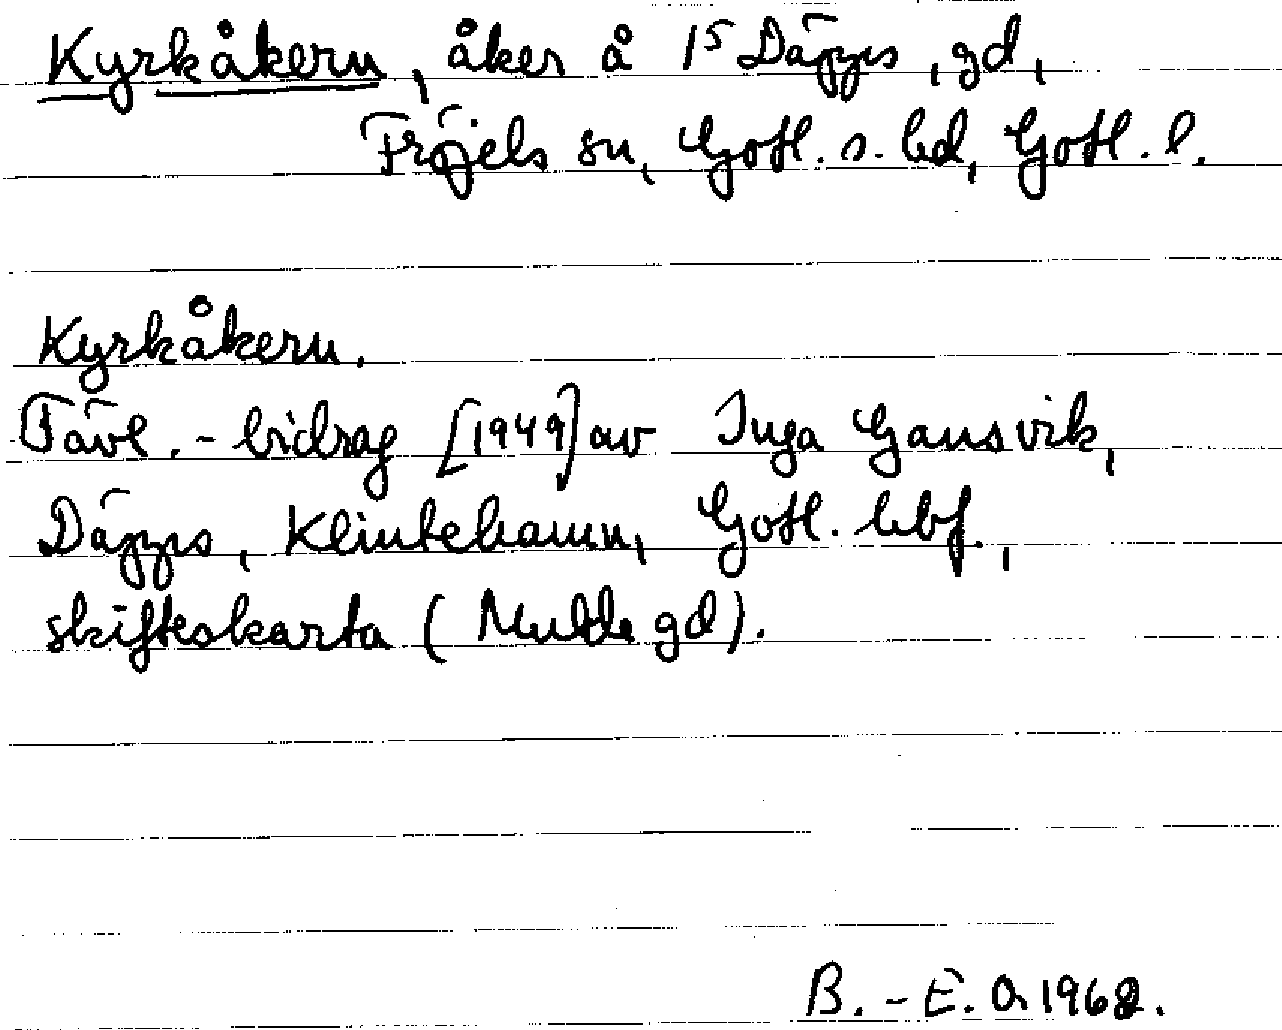 Kyrkåkern, åker å 1⁵ Däpps, gd,
Fröjels sn, Gotl. s. hd, Gotl. l.
Kyrkåkern.
Tävl.-bidrag [1949] av Inga Gansvik,
Däpps, Klintehamn, Gotl. hbf.,
skifteskarta (Mulde gd).
B.-E. O. 1962.